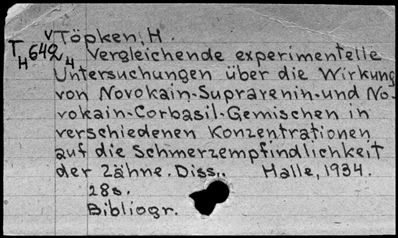 Töpken, H.
TH 642 H Vergleichende experimentelle
Untersuchungen über die Wirkung
von Novokain-Suprarenin-und No-
vokain-Corbasil-Gemischen in
verschiedenen Konzentrationen
auf die Schmerzempfindlichkeit
der Zähne. Diss. Halle, 1934.
28s.
Bibliogr.